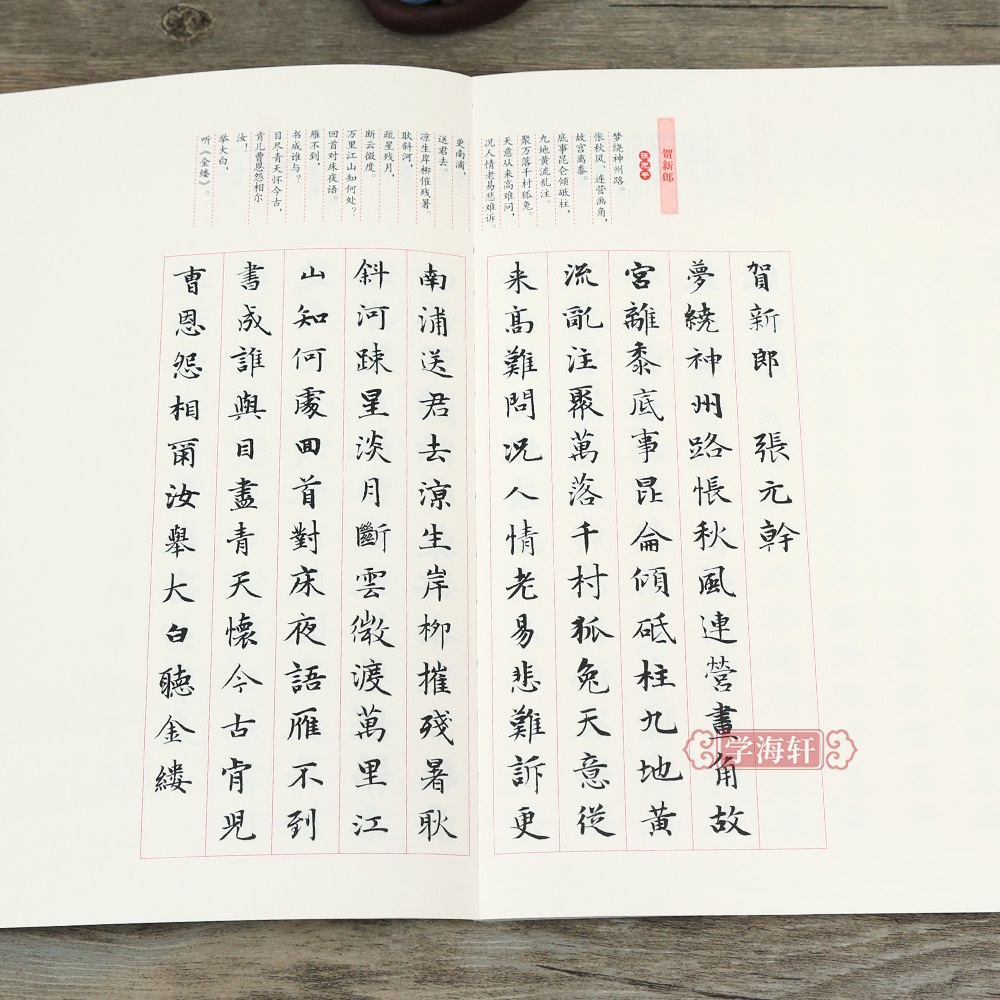 贺新郎
张元干
梦绕神州路。
怅秋风、连营画角，
故宫离黍。
底事昆仑倾砥柱，
九地黄流乱注。
聚万落千村狐兔。
天意从来高难问，
况人情老易悲难诉。
更南浦，
送君去。
凉生岸柳催残暑。
耿斜河，
疏星残月，
断云微度。
万里江山知何处？
回首对床夜语。
雁不到，
书成谁与？
目尽青天怀今古，
肯儿曹恩怨相尔
汝！
举大白，
听《金缕》。
賀新郎 張元幹
夢繞神州路悵秋風連營畫角故
宮離黍底事昆侖傾砥柱九地黃
流亂注聚萬落千村狐兔天意從
来高難問况人情老易悲難訴更
南浦送君去涼生岸柳摧殘暑耿
斜河踈星淡月斷雲微渡萬里江
山知何處回首對床夜語雁不到
書成誰與目盡青天懷今古肯児
曹恩怨相爾汝舉大白聽金縷
学海轩